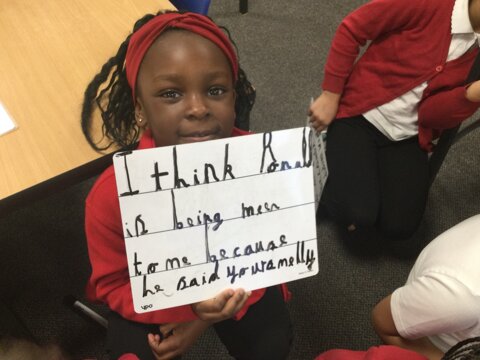 I think Ronald
is being meen
to me because
he said you smelly